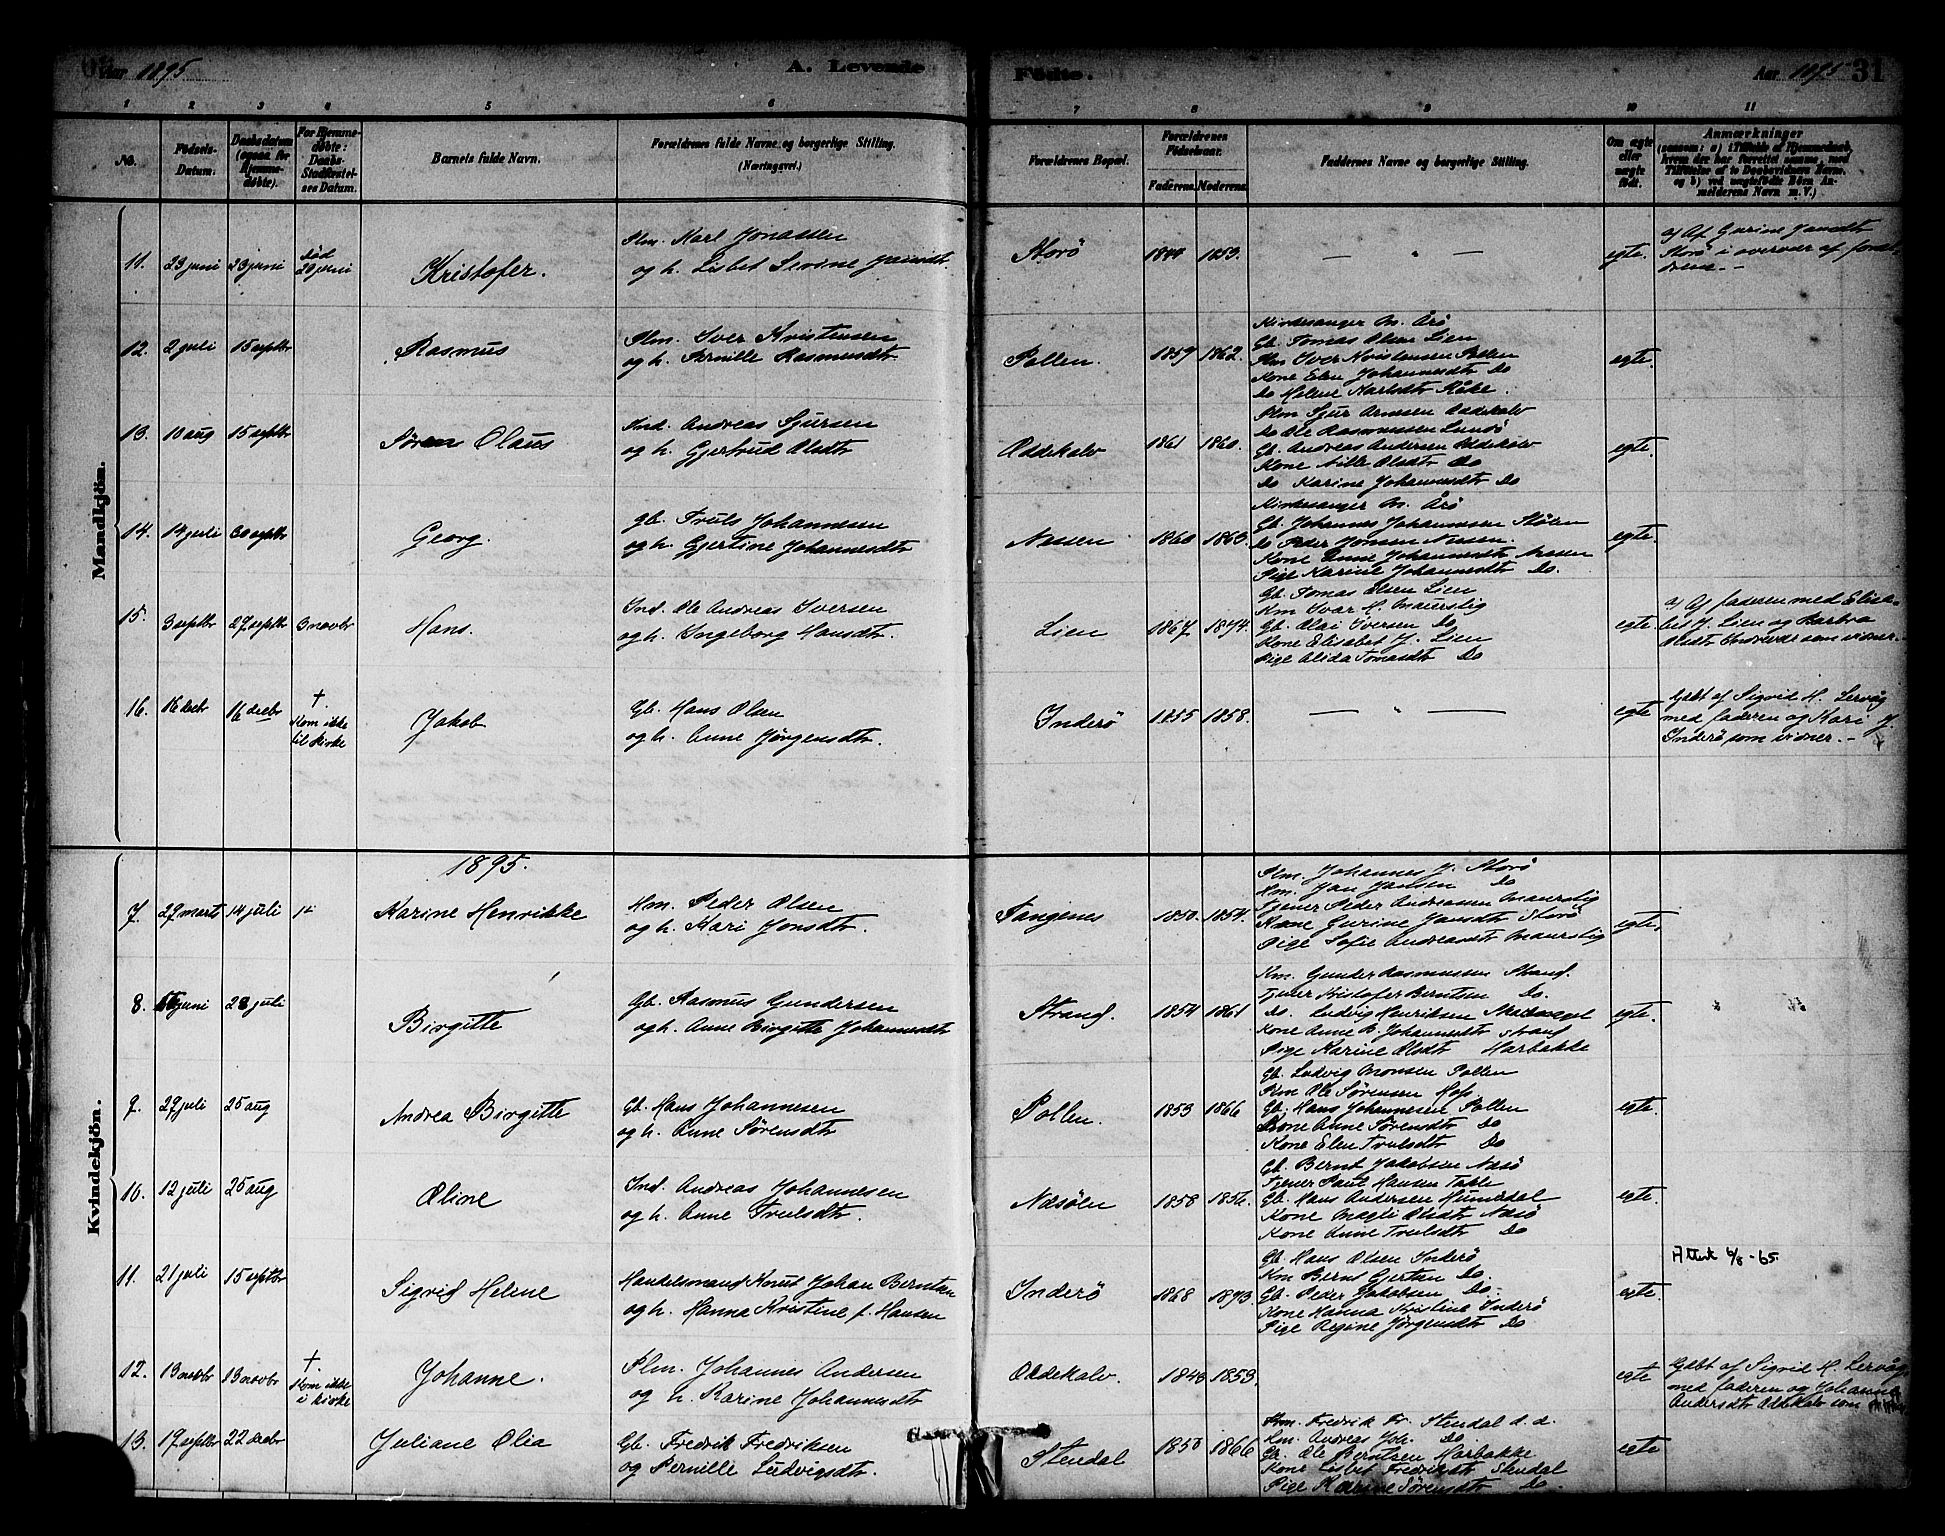 Aar 1895 A. Levende Födte. Aar 1895 31
1 2 3 4 5 6 7 8 9 10 11
No. Födsels-Datum. Daabsdatum (ogsaa for Hjemmedøbte). For Hjemmedøbte: Daabs-Stadfæstelses Datum. Barnets fulde Navn. Forældrenes fulde Navne og borgerlige Stilling. (Næringsvei.) Forældrenes Bopæl. Forældrenes Födselsaar. Faderens. Moderens. Faddernes Navne og borgerlige Stilling. Om ægte eller uægte født. Anmærkninger (saasom: a) i Tilfælde af Hjemmedaab, hvem der har forrettet samme, med Tilføielse af to Daabsvidners Navne, og b) ved uægtefødte Børn Anmelderens Navn m. V.)
Mandkjön.
11. 23 juni 23 juni død 29 juni Kristofer.
Plm. Karl Jonassen
og h. Lisbet Sevine
Storö 1853. egte.
a) Af Gurine Jansdt
Storö i overvær af
12. 2 juli 15 septbr Rasmus
Plm. Iver Kristensen
og h. Pernille Rasmusdtr.
Pollen. 1859 1862. egte.
Kirkesanger M. Årö
Gb. Tomas Olsen Lien
Plm Iver Kristensen Pollen
Kone Elen Johannesdtr Do
Do Helene Karlsdtr Råke.
13. 10 aug 15 septbr Sören Olaus
Ind. Andreas Sjursen
og h. Gjertrud Olsdtr
Oddekalv 1861 1860. egte.
Plm Sjur Arnesen Oddekalv
Do Ole Rasmussen Lundö
Gb. Andreas Andersen Oddekalv
Kone Nille Olsdtr Do
Do Karine Johannesdtr Do
14. 14 juli septbr Georg.
gb. Truls Johannesen
og h. Gjertine Johannesdtr
Nessen 1860 1863. egte.
Kirkesanger M. Årö
Gb. Johannes Johannessen Stölen
Do Peder Jonsen Nessen.
Kone Anne Johannesdtr Nessen
Pige Karine Johannesdtr Do.
15. 3 septbr 27 septbr 3 novbr Hans.
Ind. Ole Andreas Iversen
og h. Ingeborg Hansdtr.
Lien 1867 1874. egte.
Gb. Tomas Olsen Lien
Km Ivar H. Maurslig
Gb. Olai Iversen Do
Kone Elisabet J. Lien
Pige Alida Tomasdtr Do
a) Af faderen med Elisa-
bet J. Lien og Barbra
Olsdtr som vidner.
16. 16 decbr 16 decbr † Kom ikke til kirke Jakob
Gb. Hans Olsen
og h. Anne Jörgensdtr.
Inderö 1855 1858. egte
Gdbt af Sigrid H. Lervåg
med faderen og Kari J.
Inderö som vidner. -
Kvindekjön.
1895.
7. 29 marts 14 juli Karine Henrikke
Hm. Peder Olsen
og h. Kari Jonsdtr.
Tangenes 1850. 1854. egte.
Plm. Johannes J. Storö
Hm. Jan Jansen Do
Tjener Peder Andreassen Maurslig
Kone Gurine Jansdtr Storö
Pige Sofie Andreasdtr Maurslig
8. juni 28 juli Birgitte
Gb. Rasmus Gundersen
og h. Anne Birgitte Johannesdtr
Strand. 1854 1861 egte.
Km. Gunder Rasmussen Strand.
Tjener Kristofer Berntsen Do.
Do. Ludvig Henriksen
Kone Anne B. Johannesdtr Strand
Pige Karine Olsdtr Harbakke
9. 29 juli 25 aug Andrea Birgitte
Gb. Hans Johannesen
og h. Anne Sörensdtr
Pollen. 1853 1866 egte.
Gb. Ludvig Monsen Pollen
Plm Ole Sörensen Hop
Gb. Hans Johannesen Pollen
Kone Anne Sörensdtr Do
Kone Elen Trulsdtr Do
10. 12 juli 25 aug Oline
Ind. Andreas Johannesen
og h. Anne Trulsdtr.
Nasölen 1858 1856. egte.
Gb. Bernt Jakobsen Nasö
Tjener Paul Hansen Takle
Gb. Hans Andersen Humedal
Kone Magli Olsdtr Nasö
Kone Anne Trulsdtr Do
11. 21 juli 15 septbr Sigrid Helene
Handelsmand Knut Johan Berntsen
og h. Hanna Kristine f. Hansen
Inderö 1868 1873 egte.
Gb. Hans Olsen Inderö
Km Bernt Gjertsen Do.
Gb. Peder Jakobsen Do.
Kone Hanna Kristine Inderö
Pige Regine Jörgensdtr Do
Attest 6/8-65.
12. 13 novbr 13 novbr † Kom ikke i kirke Johanne.
Plm. Johannes Andersen
og h. Karine Johannesdtr
Oddekalv. 1853. egte
Gdbt af Sigrid H. Lervåg
med faderen og Johanne
Andersdtr Oddekalv som
13. 19 septbr 22 decbr Juliane Olia
Gb. Fredrik Fredriksen
og Pernille Ludvigsdtr.
Stendal 1850 1866 egte
Plm. Fredrik Fr. Stendal d. æ.
Km. Andreas Joh. Do.
Gb. Ole Berntsen Harbakke
Kone Lisbet Fredriksdtr Stendal
Pige Karine Sörensdtr Do.